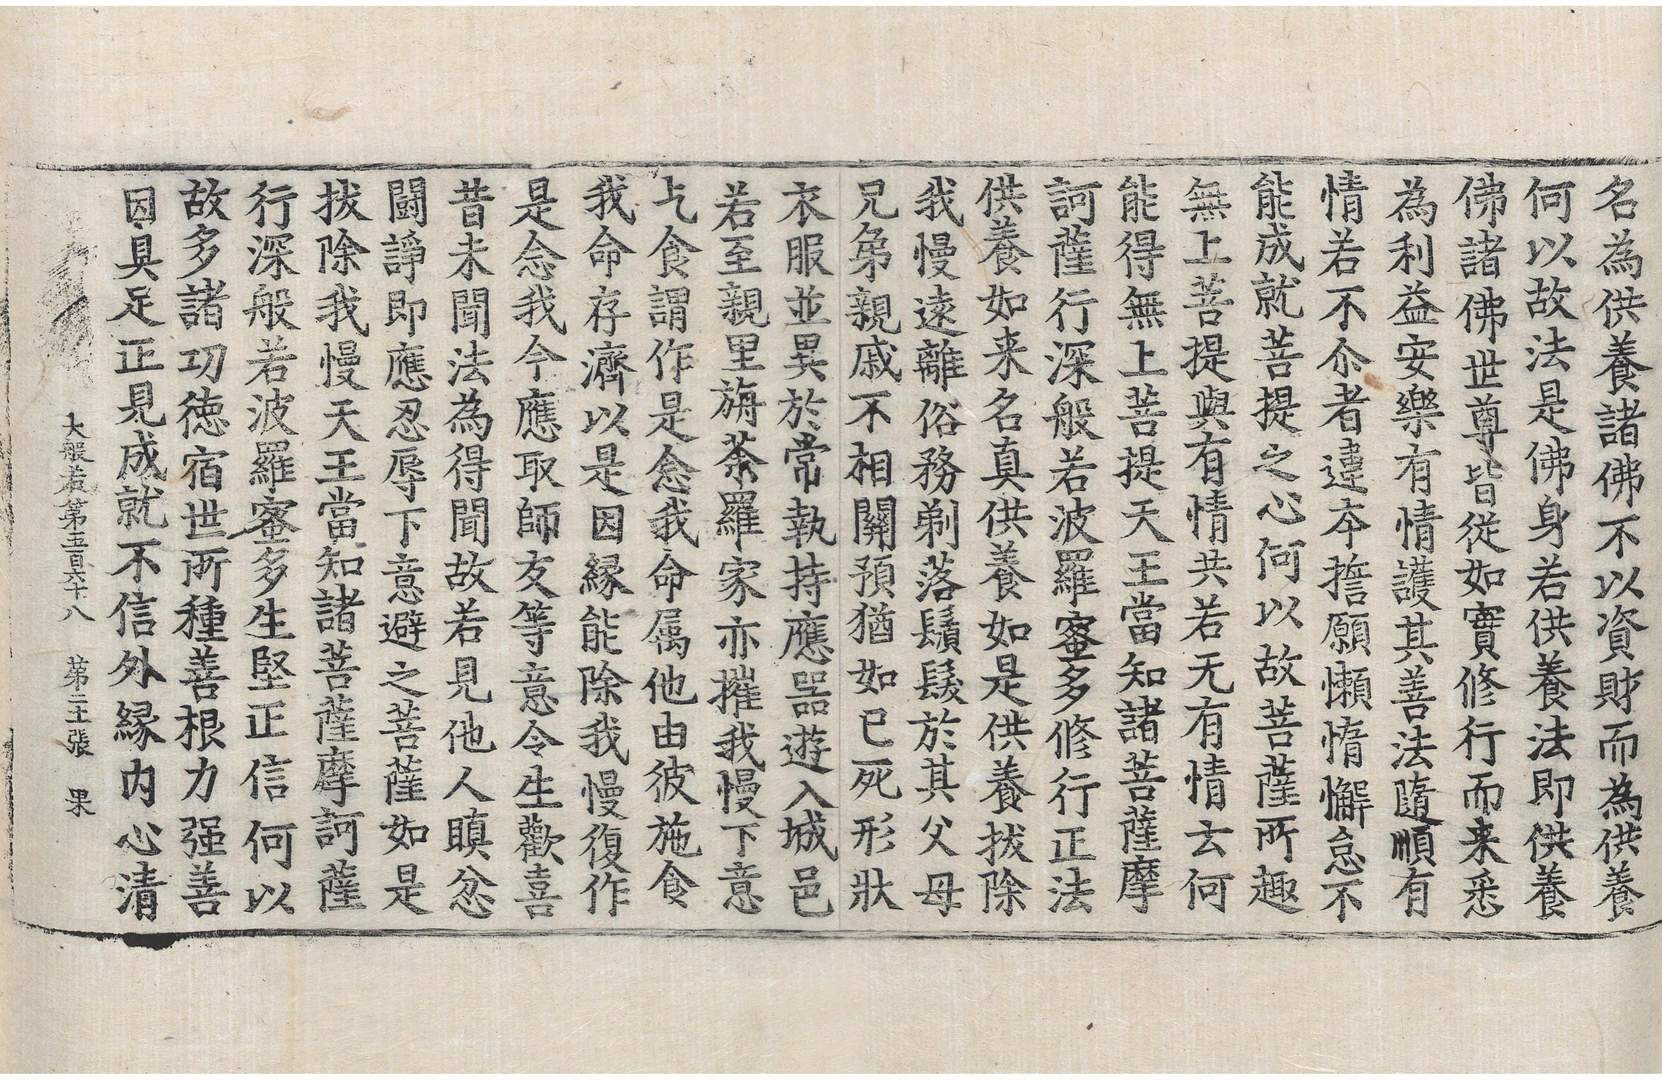 名為供養諸佛不以資財而為供養
何以故法是佛身若供養法即供養
佛諸佛世尊皆從如實修行而来悉
為利益安樂有情護其善法隨順有
情若不尒者違夲誓願懶惰懈怠不
能成就菩提之心何以故菩薩所趣
無上菩提與有情共若无有情云何
能得無上菩提天王當知諸菩薩摩
訶薩行深般若波羅蜜多修行正法
供養如来名真供養如是供養拔除
我慢遠離俗務剃落鬚髮於其父母
兄弟親戚不相關預猶如已死形狀
衣服並異於常執持應器遊入城邑
若至親里旃荼羅家亦摧我慢下意
乞食謂作是念我命属他由彼施食
我命存濟以是因縁能除我慢復作
是念我今應取師友等意令生歡喜
昔未聞法為得聞故若見他人瞋忿
鬪諍即應忍辱下意避之菩薩如是
拔除我慢天王當知諸菩薩摩訶薩
行深般若波羅蜜多生堅正信何以
故多諸功德宿世所種善根力强善
因具足正見成就不信外縁内心清
大般若第五百六十八 第二十張 果